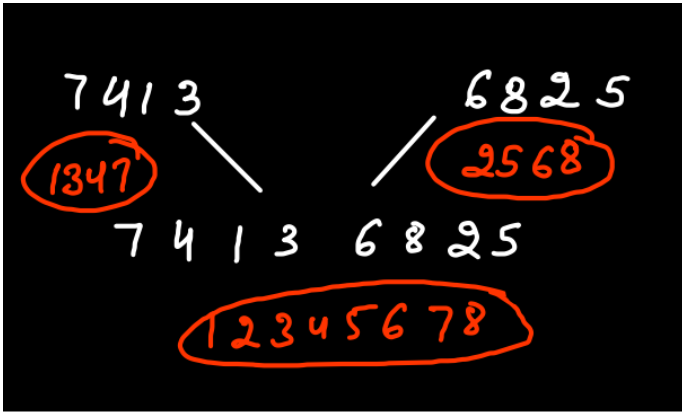 7 4 1 3
6 8 2 5
1347
2568
7 4 1 3 6 8 2 5
1 2 3 4 5 6 7 8